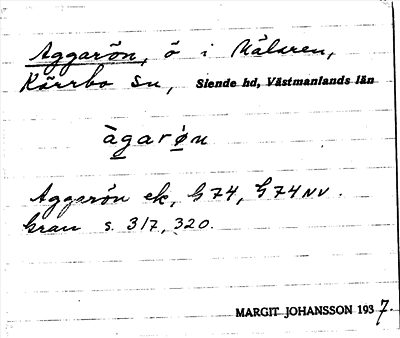 Aggarön, ö i Mälaren,
Kärrbo sn, Siende hd, Västmanlands län
àgarø̀n
Aggarön ek, G 74, G 74 NV.
Gran s. 317, 320.
MARGIT JOHANSSON 1937.